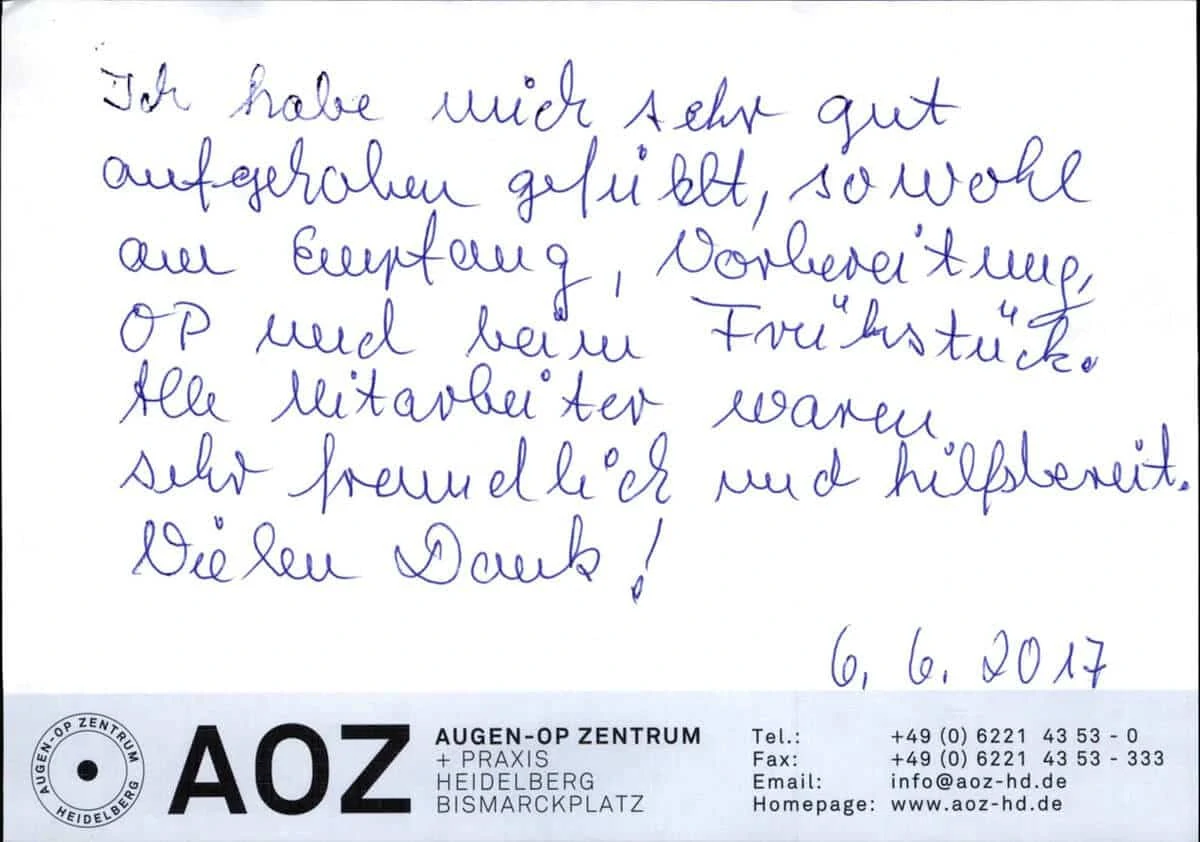 Ich habe mich sehr gut
aufgehoben gefühlt, sowohl
am Empfang, Vorbereitung,
OP und beim Frühstück.
Alle Mitarbeiter waren
sehr freundlich und hilfsbereit.
Vielen Dank!
6. 6. 2017
AUGEN-OP ZENTRUM
HEIDELBERG
AOZ
AUGEN-OP ZENTRUM
+ PRAXIS
HEIDELBERG
BISMARCKPLATZ
Tel.: +49 (0) 6221 43 53 - 0
Fax: +49 (0) 6221 43 53 - 333
Email: info@aoz-hd.de
Homepage: www.aoz-hd.de